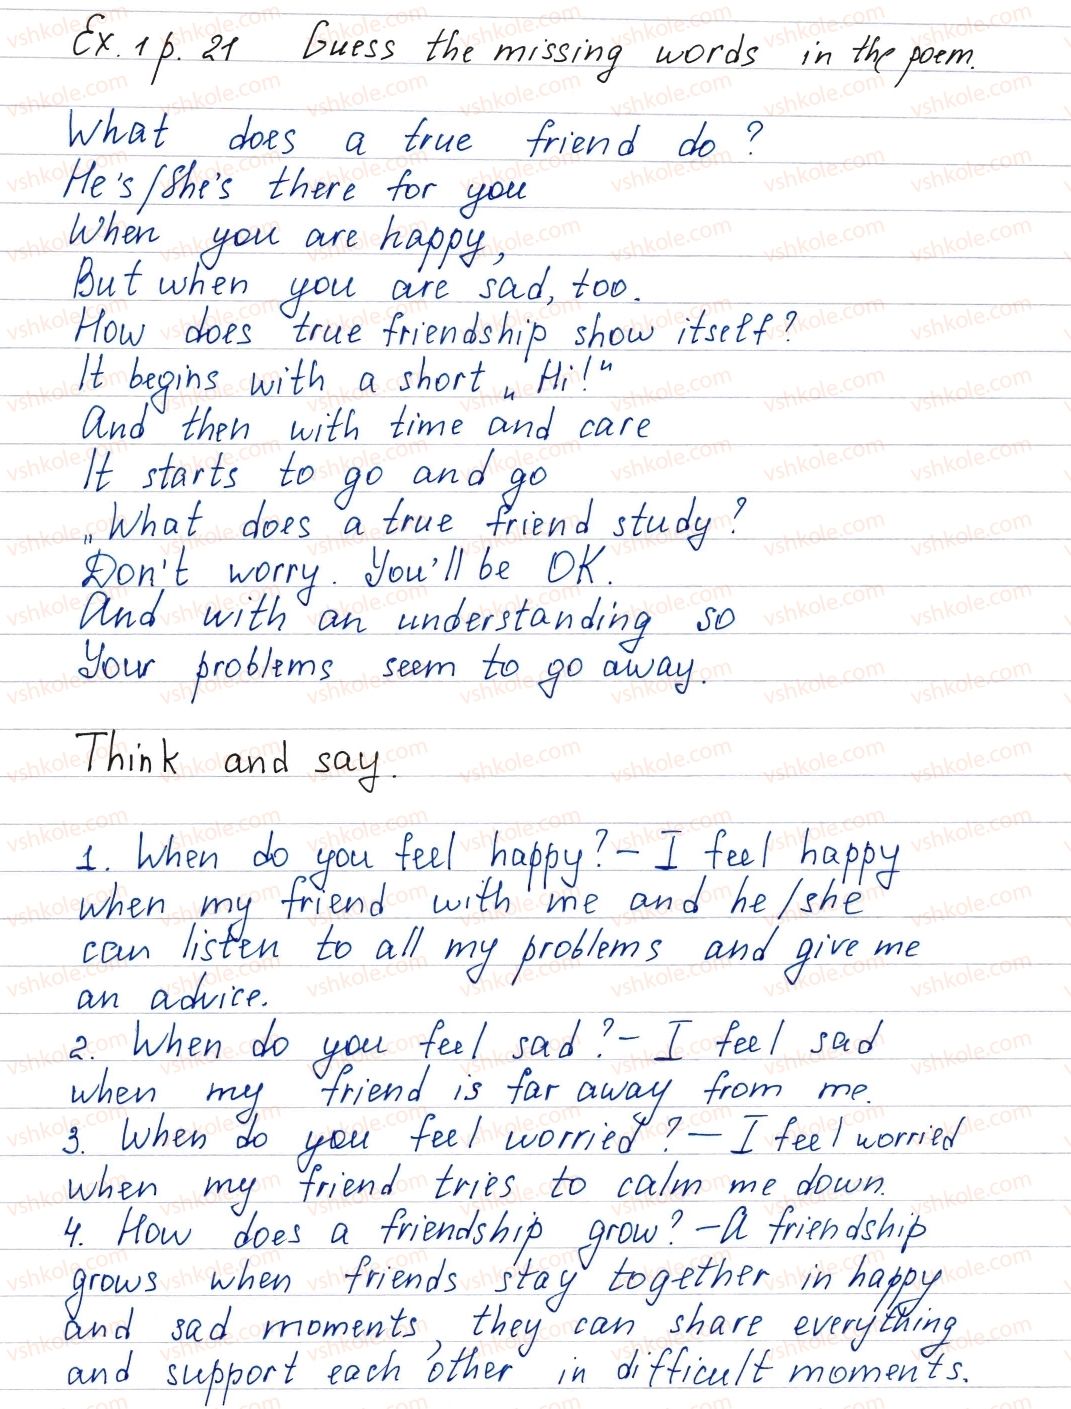 Ex. 1 p. 21 Guess the missing words in the poem.
What does a true friend do?
He's/She's there for you
When you are happy,
But when you are sad, too.
How does true friendship show itself?
It begins with a short „Hi!"
And then with time and care
It starts to go and go
„What does a true friend study?
Don't worry. You'll be OK.
And with an understanding so
Your problems seem to go away.
Think and say.
1. When do you feel happy? – I feel happy
when my friend with me and he/she
can listen to all my problems and give me
an advice.
2. When do you feel sad? – I feel sad
when my friend is far away from me.
3. When do you feel worried? – I feel worried
when my friend tries to calm me down.
4. How does a friendship grow? – A friendship
grows when friends stay together in happy
and sad moments, they can share everything
and support each other in difficult moments.